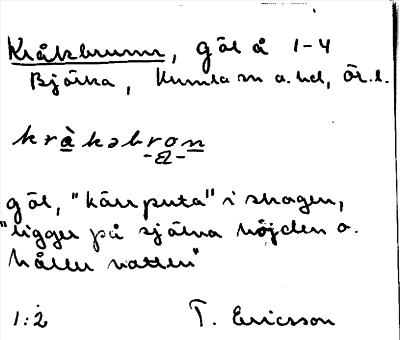 Kråkbrunn, göl å 1-4
Björka, Kumla sn o. hd, Ör. l.
kràkəbron
-ə-
göl, "kärrputa" i skogen,
"ligger på själva höjden o.
håller vatten"
1:2 T. Ericsson